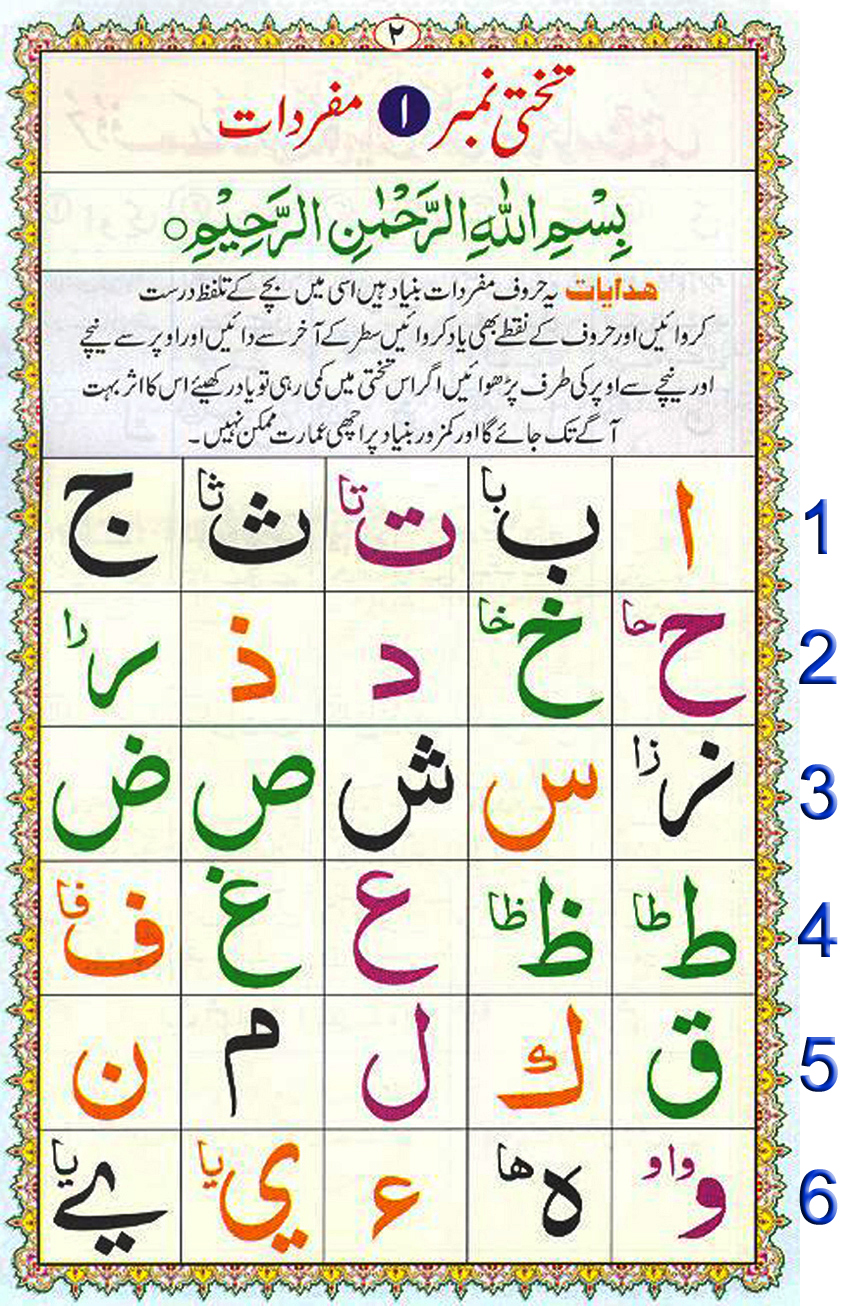 ۲
تختی نمبر ۱ مفردات
بِسْمِ اللّٰهِ الرَّحْمٰنِ الرَّحِيْمِ ○
ھدایات یہ حروف مفردات بنیاد ہیں اسی میں بچے کے تلفظ درست
کروائیں اور حروف کے نقطے بھی یاد کروائیں سطر کے آخر سے دائیں اور اوپر سے نیچے
اور نیچے سے اوپر کی طرف پڑھوائیں اگر اس تختی میں کمی رہی تو یاد رکھیئے اس کا اثر بہت
آگے تک جائے گا اور کمزور بنیاد پر اچھی عمارت ممکن نہیں۔
ا ب با ت تا ث ثا ج 1
ح حا خ خا د ذ ر را 2
ز زا س ش ص ض 3
ط طا ظ ظا ع غ ف فا 4
ق ك ل م ن 5
و واو ہ ھا ء ي یا ے یا 6